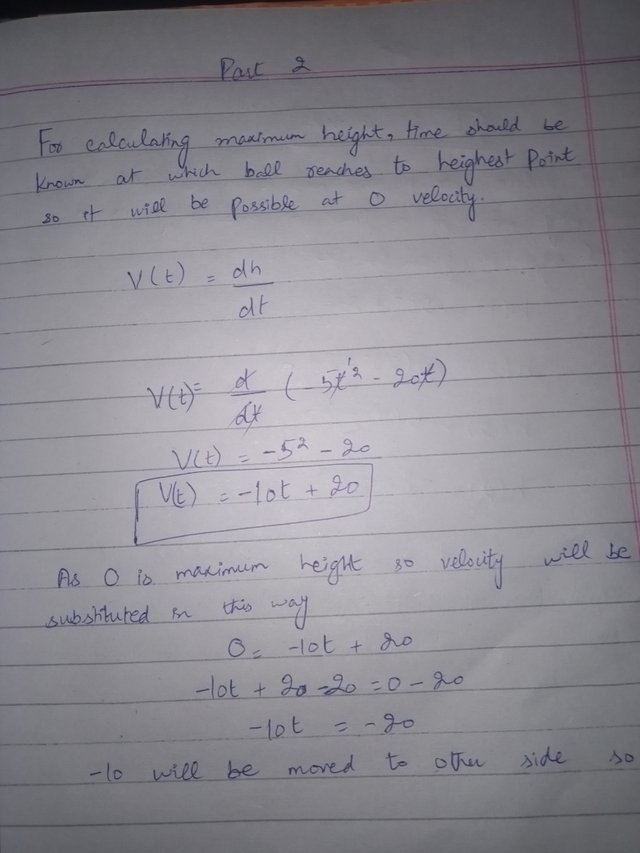 Part 2
For calculating maximum height, time should be
known at which ball reaches to heighest Point
so it will be possible at 0 velocity.
V(t) = dh
dt
V(t) = d ( -5t² - 20t)
dt
V(t) = -5² - 20
V(t) = -10t + 20
As 0 is maximum height so velocity will be
substituted in this way
0 = -10t + 20
-10t + 20 - 20 = 0 - 20
-10t = -20
-10 will be moved to other side so